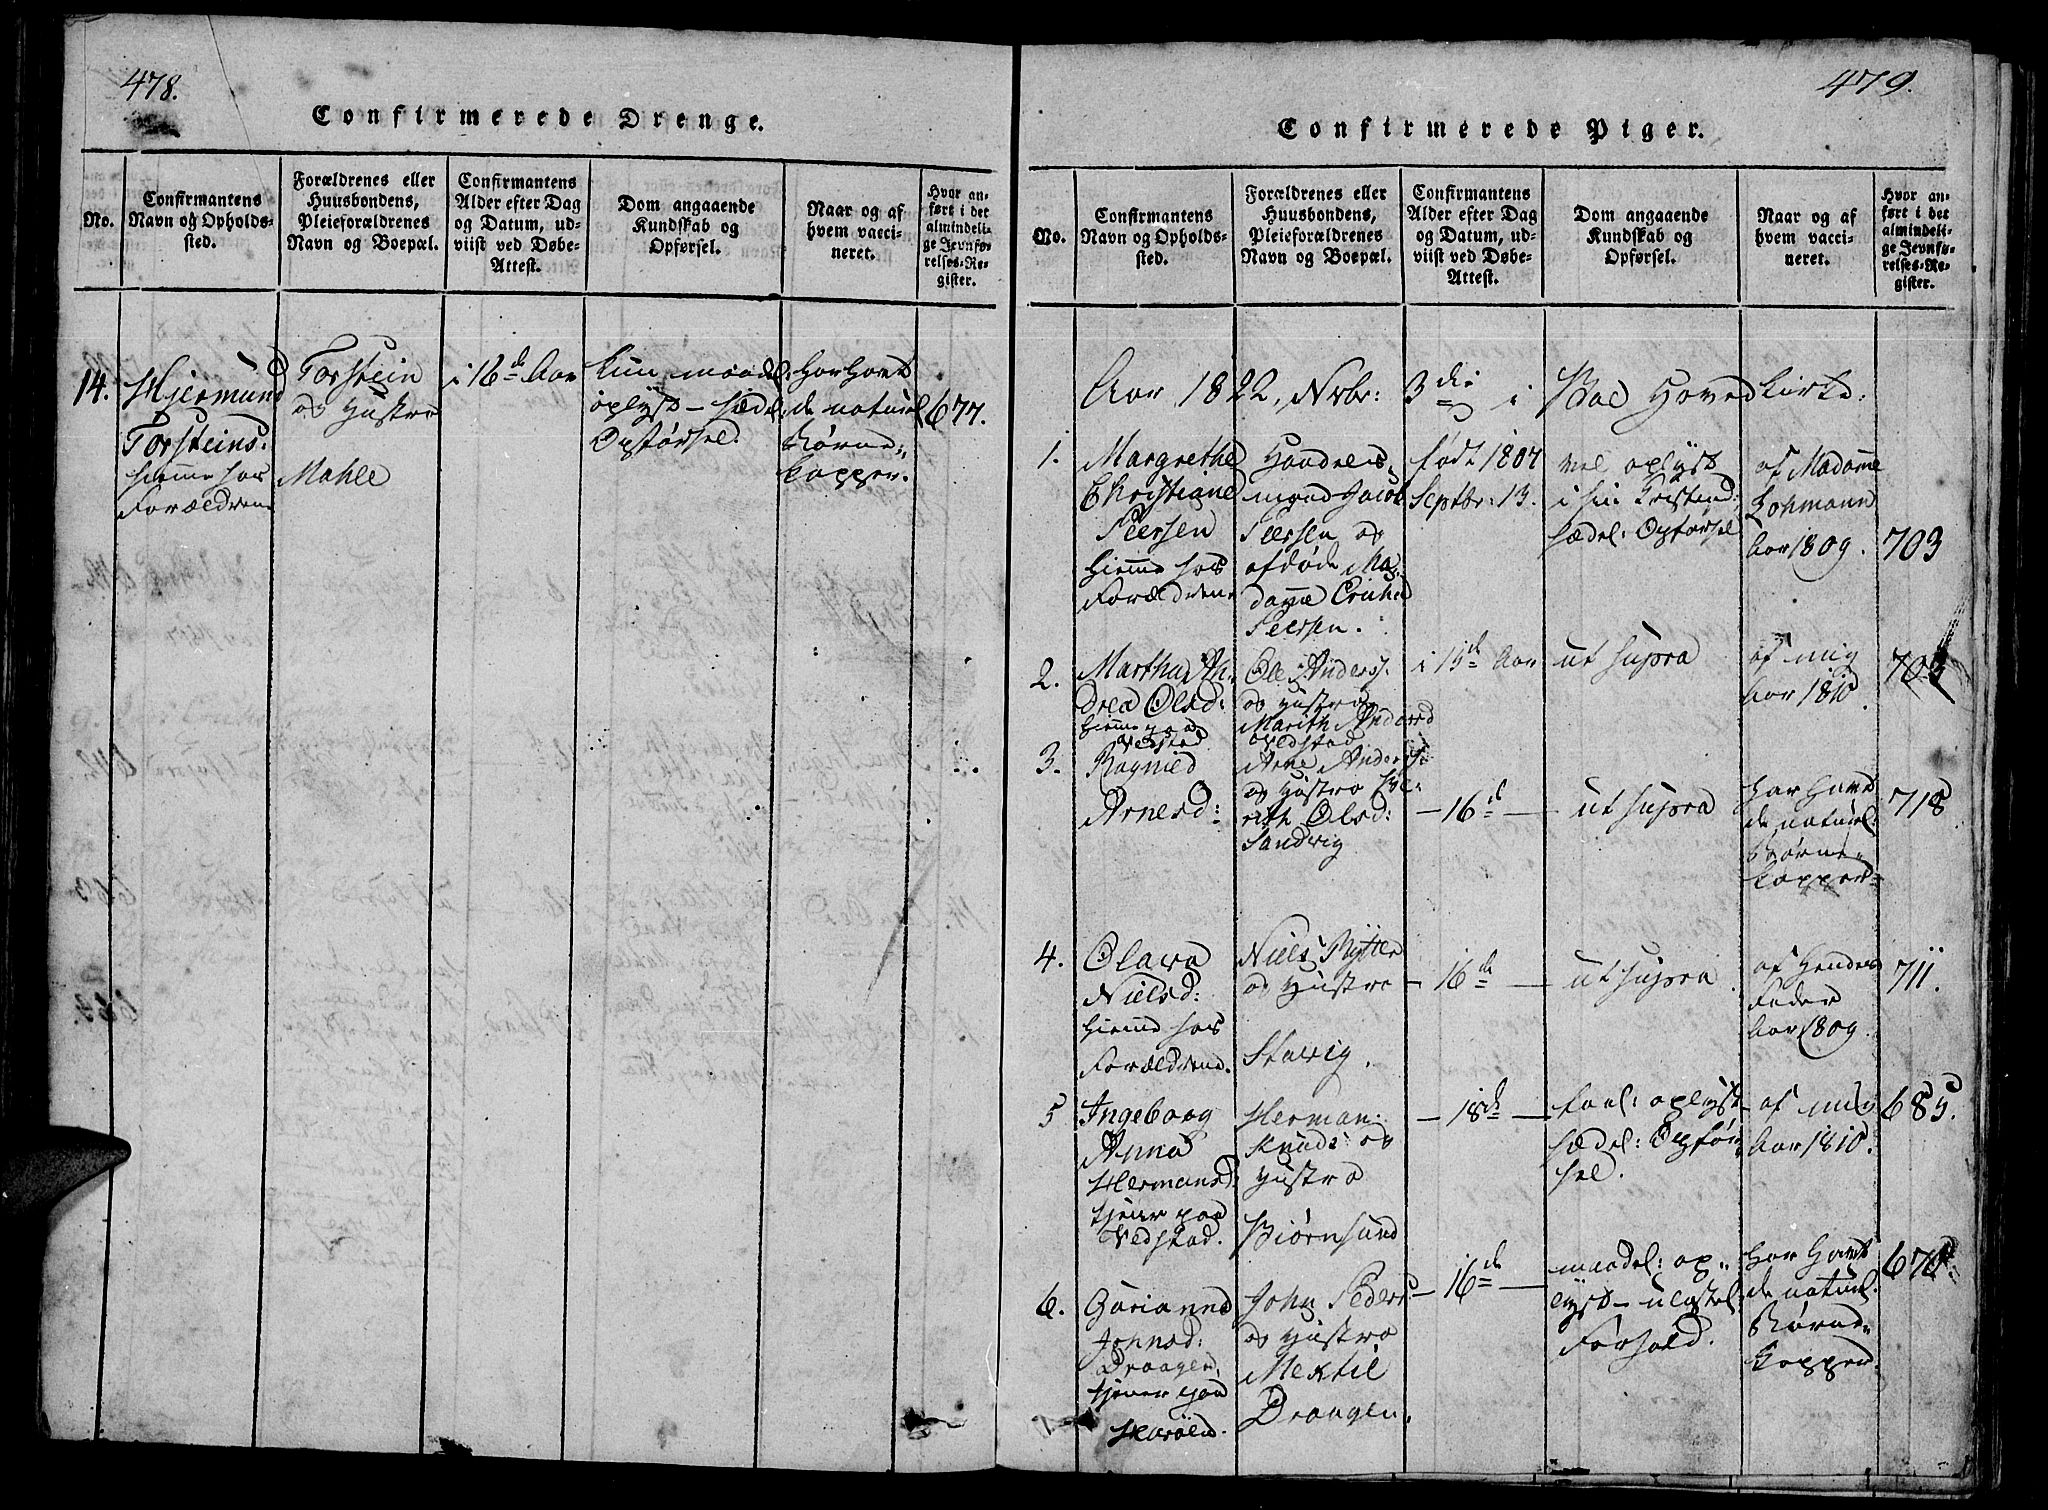 478.
Confirmerede Drenge.
No.
Confirmantens
Navn og Opholds-
sted.
Forældrenes eller
Huusbondens,
Pleieforældrenes
Navn og Boepæl.
Confirmantens
Alder efter Dag
og Datum, ud-
viist ved Døbe-
Attest.
Dom angaaende
Kundskab og
Opførsel.
Naar og af
hvem vacci-
neret.
Hvor an-
ført i det
almindeli-
ge Jevnfø-
relses-Re-
gister.
14.
Hjermund
Torsteins:
hiemme hos
Forældrene
Torstein
og Hustro
Mahle
i 16de Aar
kun maadel:
oplyst – sædel:
Opførsel.
har havt
de naturel
Børne-
kopper.
677.
479.
Confirmerede Piger.
No.
Confirmantens
Navn og Opholds-
sted.
Forældrenes eller
Huusbondens,
Pleieforældrenes
Navn og Boepæl.
Confirmantens
Alder efter Dag
og Datum, ud-
viist ved Døbe-
Attest.
Dom angaaende
Kundskab og
Opførsel.
Naar og af
hvem vacci-
neret.
Hvor an-
ført i det
almindeli-
ge Jevnfø-
relses-Re-
gister.
Aar 1822, Nvbr: 3die i Hovedkirke.
1.
Margrethe
Christiane
Peersen
hiemme hos
Forældrene
Handels-
mand Jacob
Peersen og
afdøde Ma-
dame
Peersen.
født 1807
Septbr: 13.
vel oplyst
i sin Kristend:
sædel: Opførsel
af Madame
Lohmann
Aar 1809.
703
2.
Martha An-
drea Olsd:
hiemme paa
Vedstad
Ole Anders:
og Hustro
Marith Andersd
Vedstad
i 15de Aar
ut supra
af mig
Aar 1810.
703
3.
Ragnild
Arnesd:
Arne Anders:
og Hustro
Olsd:
Sandvig
– 16de –
ut supra
har havt
de naturel:
Børne-
kopper
718
4.
Olava
Nielsd:
hiemme hos
Forældrene.
Niels Rytter
og Hustro
Stavig.
– 16de –
ut supra.
af hendes
Fader
Aar 1809.
711.
5
Ingeborg
Anna
Hermansd:
tjener paa
Vedstad.
Herman
Knuds: og
Hustro
Biørnsund
– 18de –
taal: oplyst
sædel: Opfør-
sel.
af mig
Aar 1810.
685.
6.
Gurianna
Johnsd:
Draagen,
tjener paa
Harøen.
John Peders:
og Hustro
Mektil
Draagen.
– 16de –
maadel: op-
lyst – ulastel:
Forhold.
har havt
de naturel.
Børne-
kopper.
670.